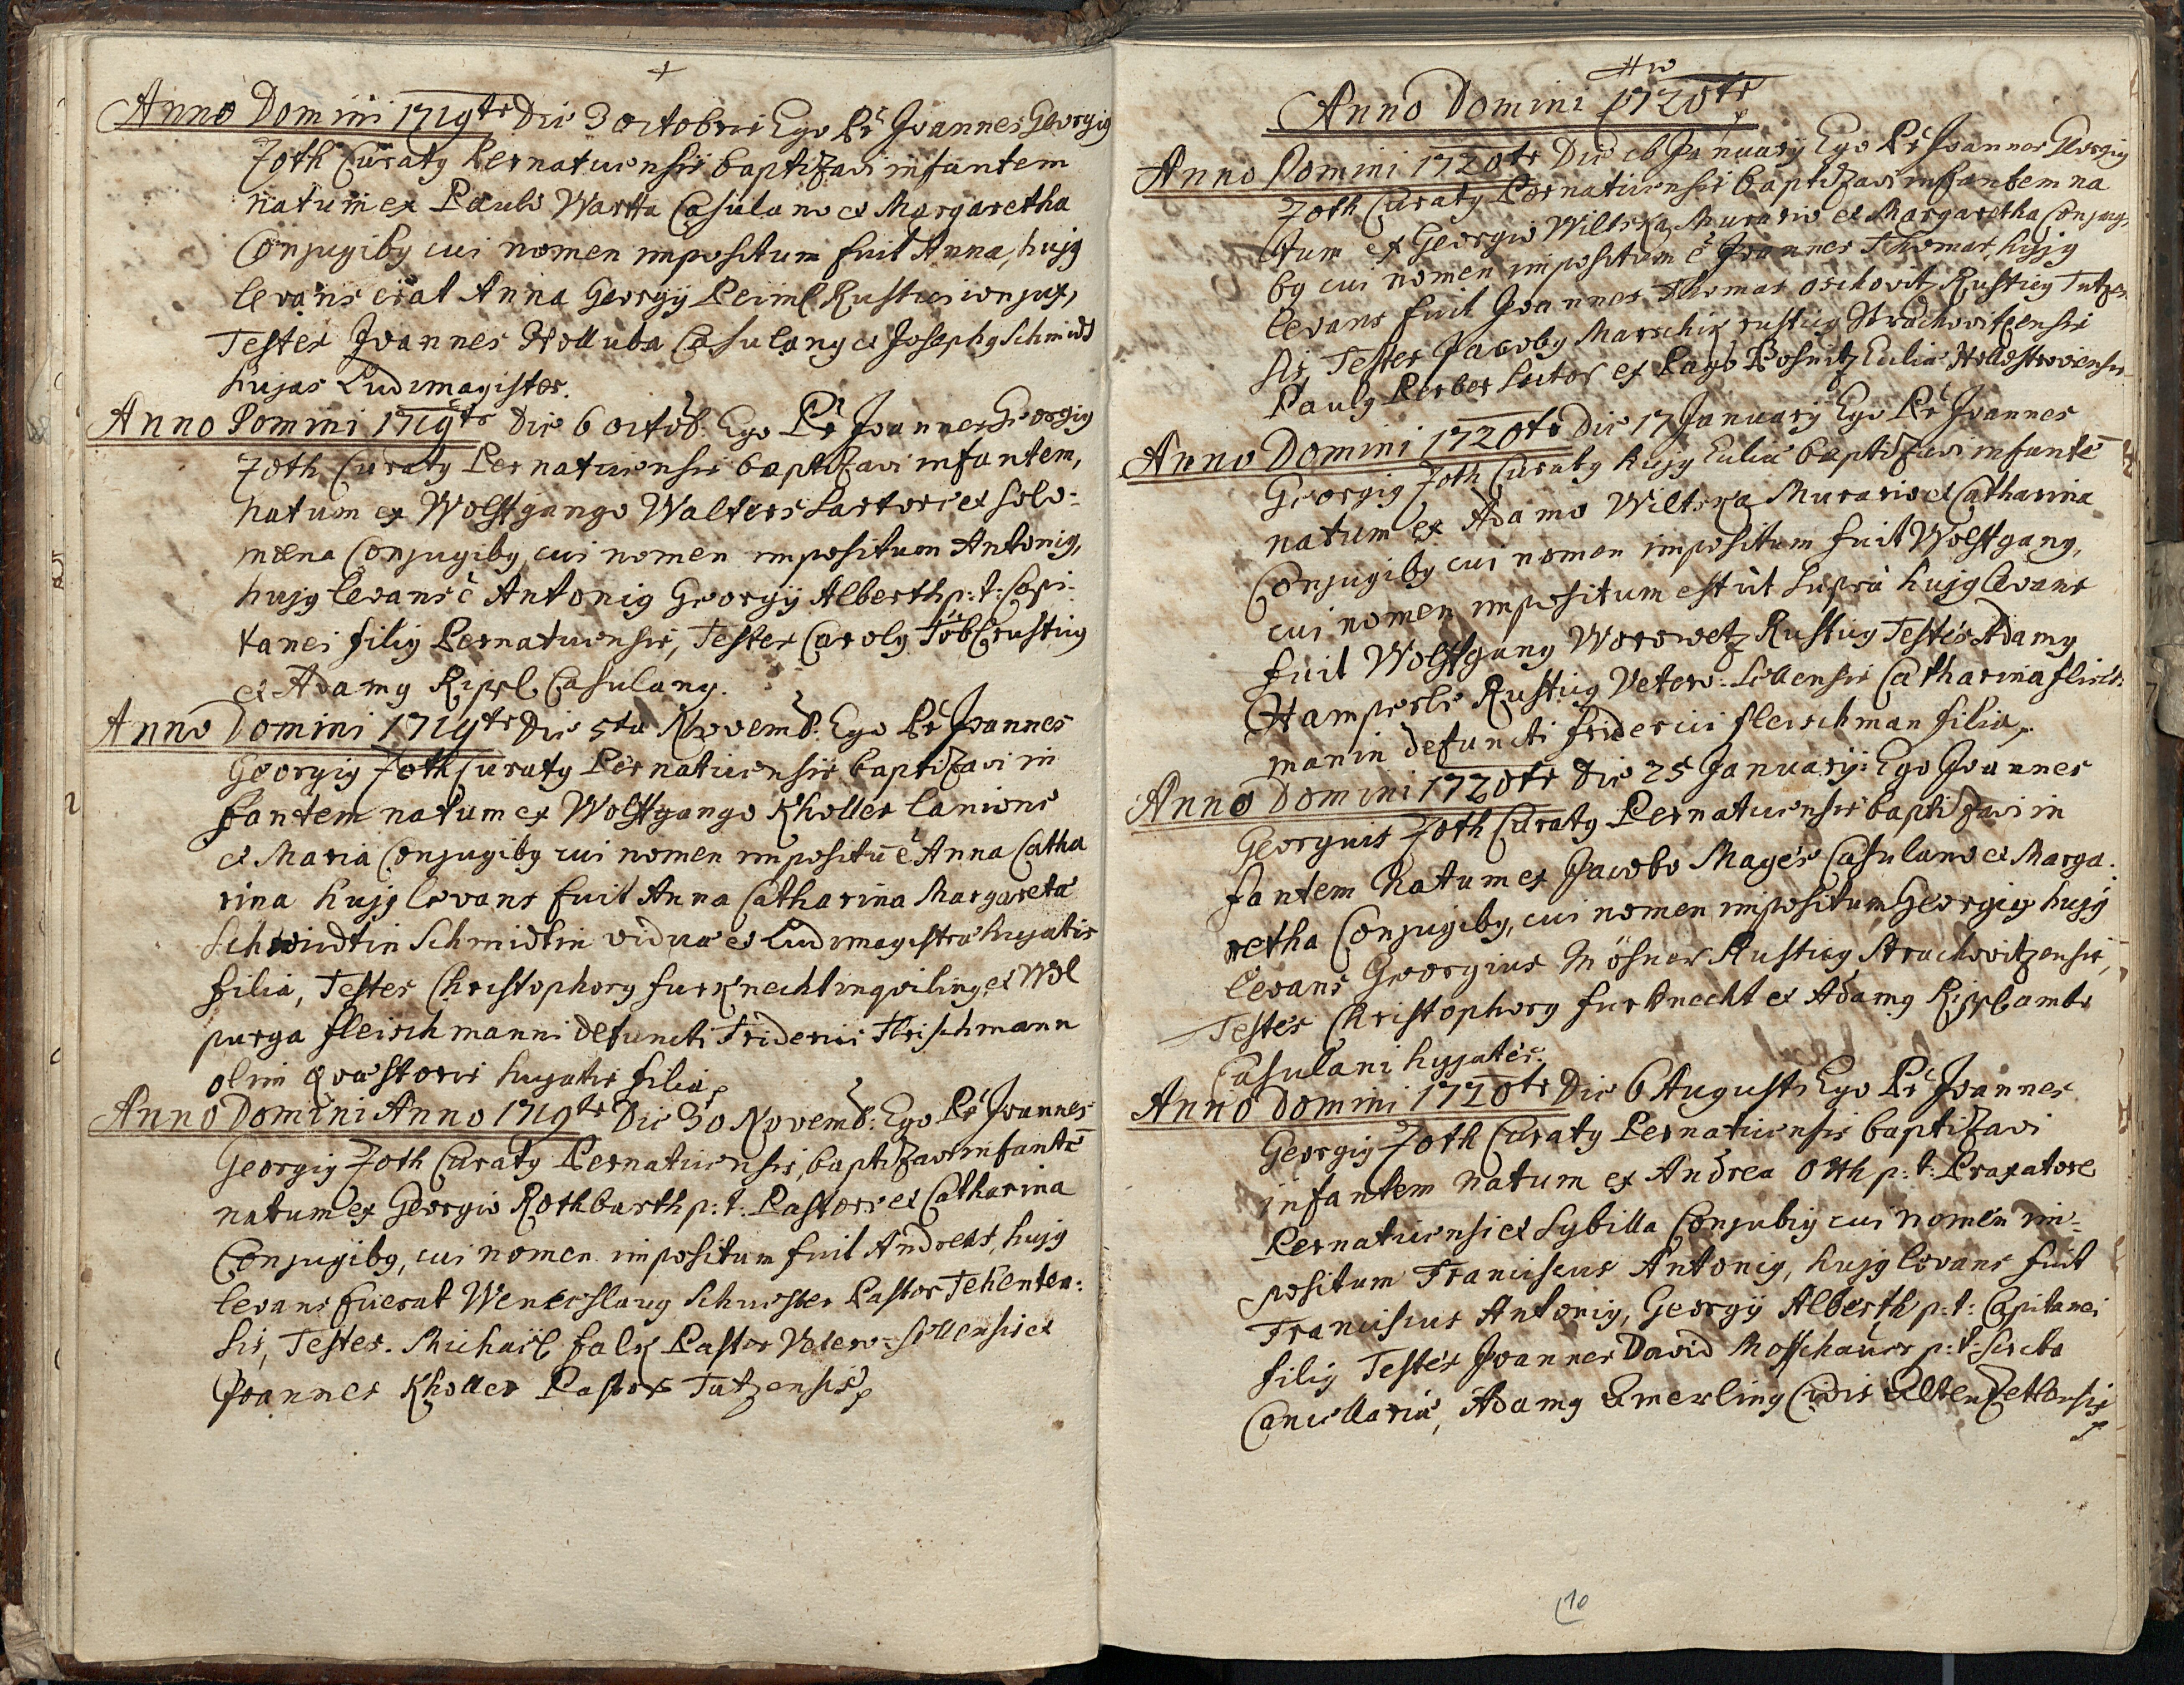 Anno Domini 1719te Die 3 octobris Ego Pr Joannes Georgig
Zoth Curatg Pernaticensis baptizavi infantem
natum ex Paulo Wartta Casulano et Margaretha
Conjugibg cui nomen impositum fuit Anna, hujg
levans erat Anna Georgÿ Peiml Rustici conjux,
Testes Joannes Holluba Casulang et Josephg Schmidt
hujas Ludimagister.
Anno Domini 1719te Die 6 octob. Ego Pr Joannes Georgig
Zoth Curatg Pernaticensis baptizavi infantem,
natum ex Wolffgango Walters Sartore et Solo-
mena Conjugibg, cui nomen impositum Antonig,
hujg levans ē Antonig Georgÿ Alberth p: t: Capi-
tanei filig Pernaticensis, Testes Carolg Töbl rusticg
et Adamg Rippl Casulang.
Anno Domini 1719te Die 5ta Novemb. Ego Pr Joannes
Georgig Zoth Curatg Pernaticensis baptizavi in
fantem natum ex Wolffgango Kholler lanione
et Maria Conjugibg cui nomen impositū ē Anna Catha
rina hujg levans fuit Anna Catharina Margareta
Schmidtin vidua et Ludimagistra hujatis
filia, Testes Christophorg furknecht inqviling et Wol
purga fleischmanni defuncti Friderici Fleischmann
olim Qvæstoris hujatis filia
Anno Domini Anno 1719te Die 30 Novemb: Ego Pr Joannes
Georgig Zoth Curatg Pernaticensis, baptizavi infantē
natum ex Georgio Rothbarth p: t: Pastore et Catharina
Conjugibg, cui nomen impositum fuit Andreas, hujg
levans fuerat Wenceslaug Schuster Pastor Tehenten:
sis, Testes. Michaël falk Pastor Vetero-Sillensis et
Joannes Kholler Pastor Tutzensis
Anno Domini 1720te
Anno Domini 1720te Die Januarÿ Ego Pr Joannes Georgig
Zoth Curatg Pernaticensis baptizavi infantem na
tum ex Georgio Wiltska Murario et Margaretha Conjugi
bg cui nomen impositum ē Joannes Thomas, hujg
levans fuit Joannes Thomas oschovitz Rusticg Tutzen
sis, Testes Jacobg Marschik rusticg Strachovitzensis
Paulg Perber Sutor ex Pago Hollestroviensis
Anno Domini 1720te Die 17 Januarÿ Ego Pr Joannes
Georgig Zoth Curatg hujg Eccliæ baptizavi infantē
natum ex Adamo Wiltska Murario et Catharina
Conjugibg cui nomen impositum fuit Wolffgang,
cui nomen impositum est ut supra hujg levans
fuit Wolffgang Worowetz Rusticg Testes Adamg
Hamperle Rusticg Vetero-Sillensis Catharina fleisch
manin defuncti friderici fleischman filia
Anno Domini 1720te Die 25 Januarÿ: Ego Joannes
Georgius Zoth Curatg Pernaticensis baptizavi in
fantem natum ex Jacobo Mages Casulano et Marga.
retha Conjugibg, cui nomen impositum Georgig hujg
levans Georgius Mösner Rusticg Strachovitzensis,
Testes Christophorg furknecht et Adamg Rippl ambo
Casulani hujates.
Anno Domini 1720te Die 6 Augusti Ego Pr Joannes
Georgig Zoth Curatg Pernaticensis baptizavi
infantem natum ex Andrea Otth p: t: Praxatore
Pernaticensi et Sybilla Conjubig cui nomen im-
positum Franciscus Antonig, hujg levans fuit
Franciscus Antonig, Georgÿ Alberth p: t: Capitanei
filig Testes Joannes David Moschauer p: t: Scriba
Cancellariæ, Adamg Emerling Civis Altenzetlensis
10